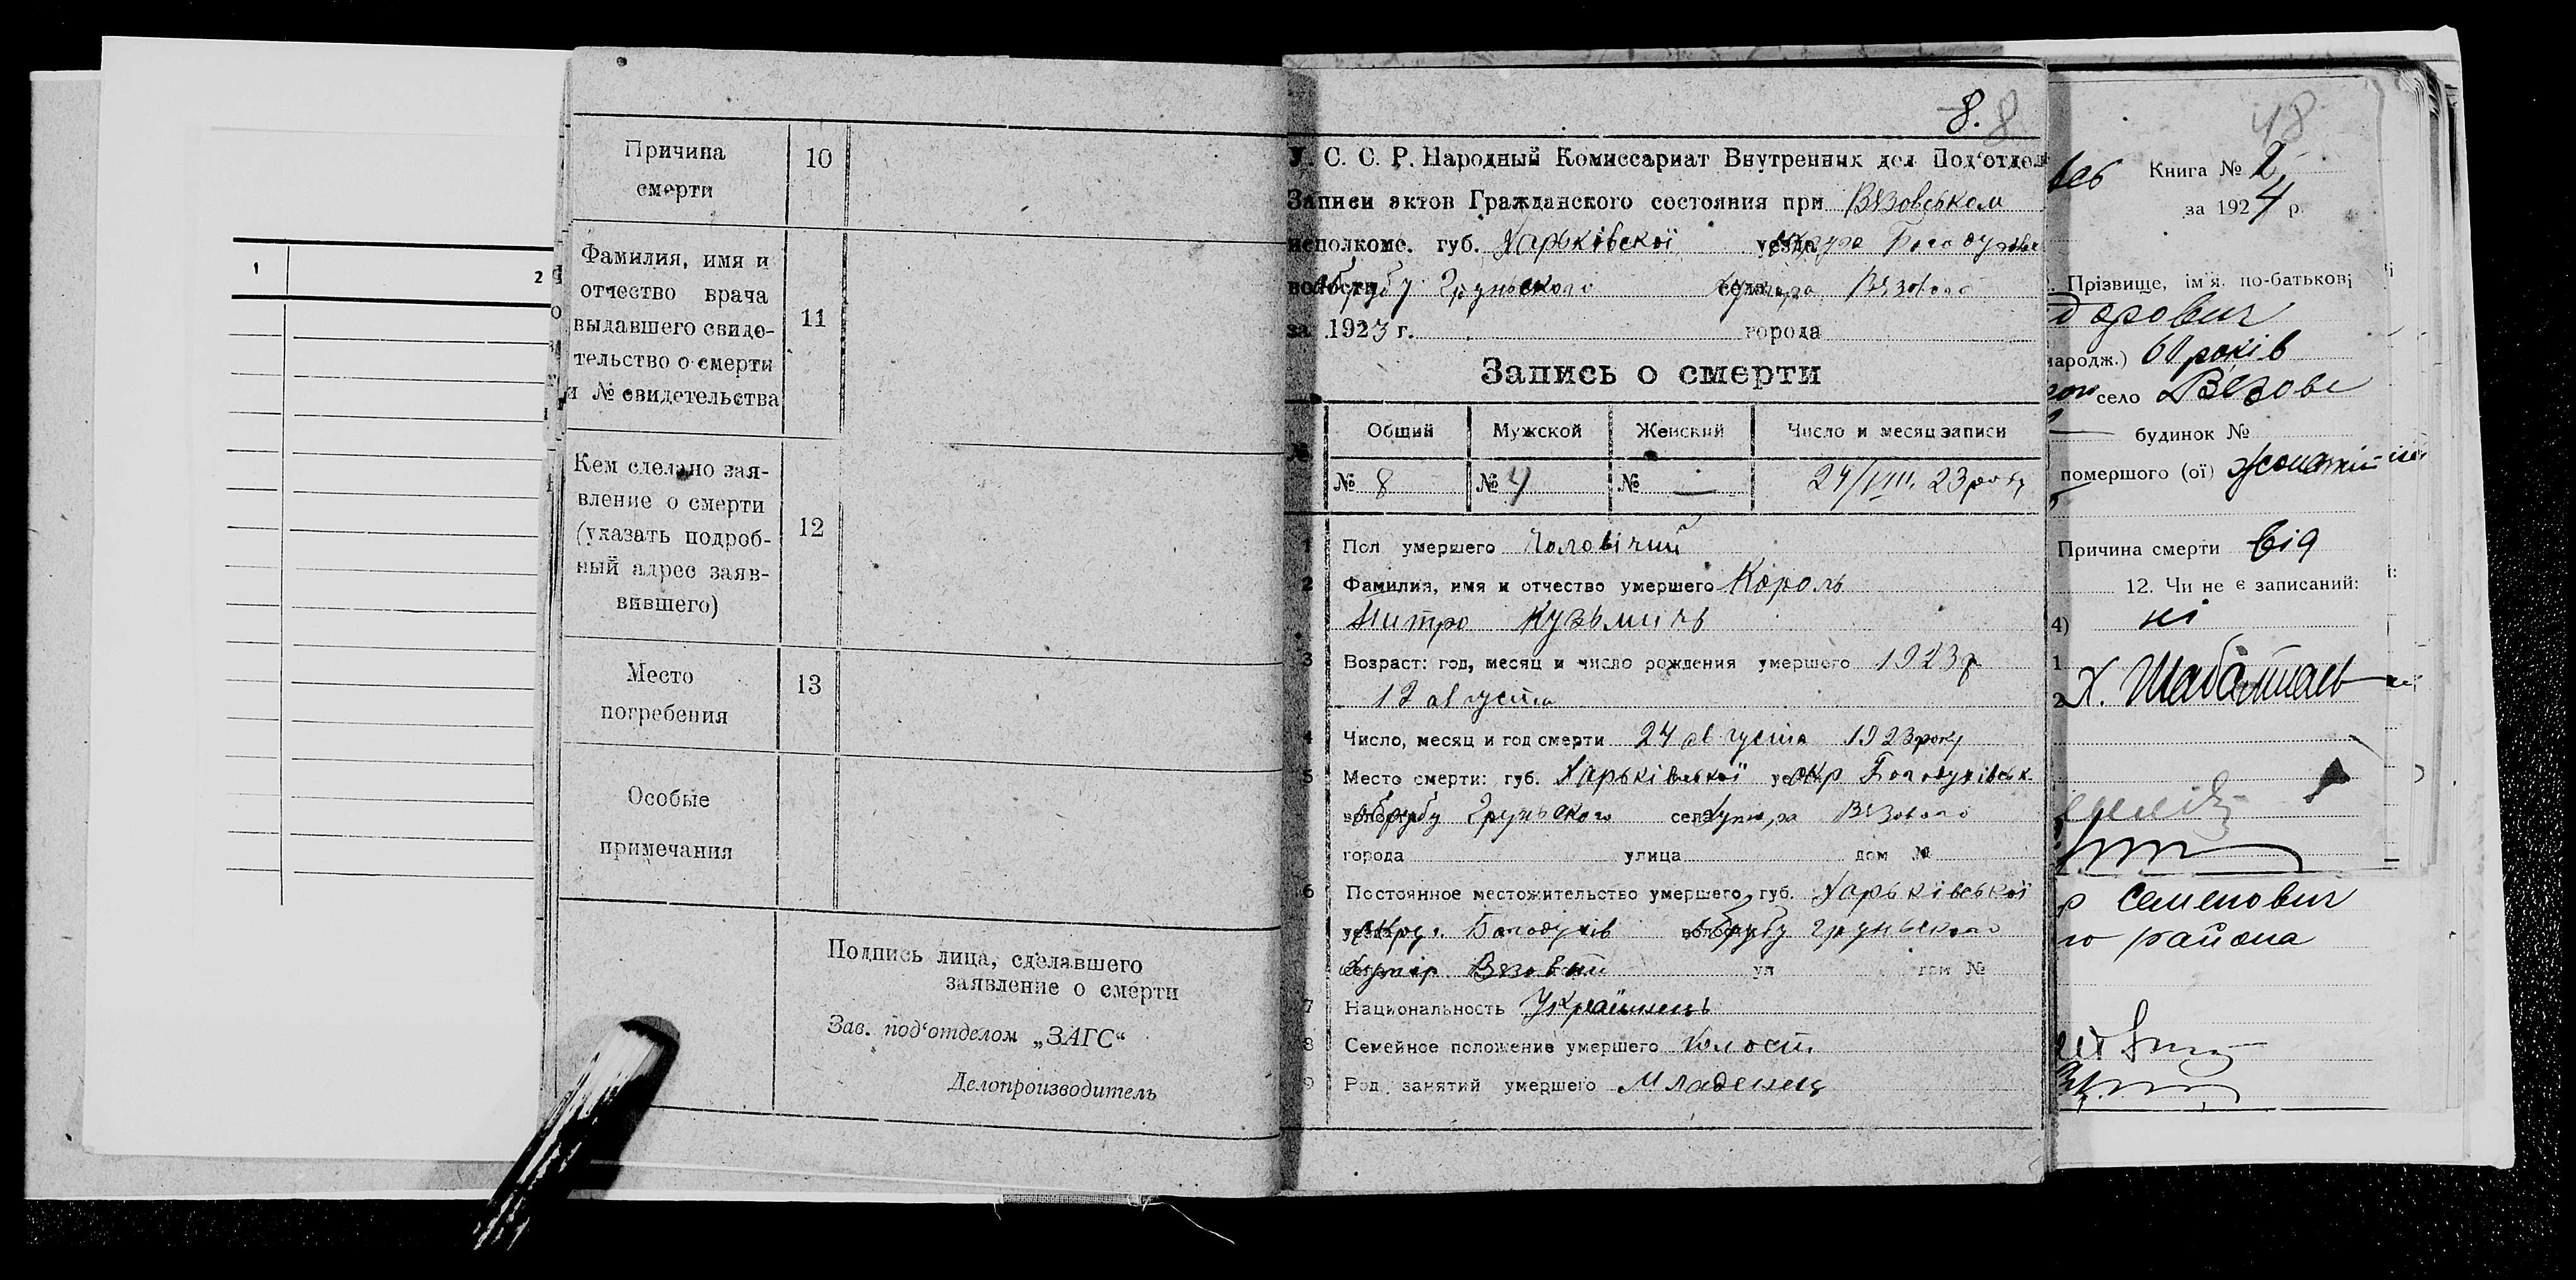 1 2
Причина
смерти
10
Фамилия, имя и
отчество врача
выдавшего свиде-
тельство о смерти
и № свидетельства
11
Кем сделано зая-
вление о смерти
(указать подроб-
ный адрес заяв-
вившего)
12
Место
погребения
13
Особые
примечания
Подпись лица, сделавшего
заявление о смерти
Зав. под‘отделом „ЗАГС“
Делопроизводитель
8. 8
У. С. С. Р. Народный Комиссариат Внутренних дел Под‘отдел
Записи актов Гражданского состояния при Вязовськом
исполкоме. губ. Харьківської уезда округа Богодухове
волости Грунського села хутора Вязового
за 1923 г. города
Запись о смерти
№ Общий Мужской Женский Число и месяц записи
№ 8 № 4 № — 24/VIII. 23 року
1 Пол умершего Чоловічий
2 Фамилия, имя и отчество умершего Король
Митро Кузьмичь
3 Возраст: год, месяц и число рождения умершего 1923 р
12 августа
4 Число, месяц и год смерти 24 августа 1923 року
5 Место смерти: губ. Харьківської окр Богодухівськ
волости Грунського села Хутора Вязового
города улица дом №
6 Постоянное местожительство умершего, губ. Харьківської
уезд Богодухів волость Грунського
Хутір Вязовий ул дом №
7 Национальность Українець
8 Семейное положение умершего Холост.
9 Род занятий умершего Младенец
48
Книга № 2
за 1924 р.
Прізвище, ім'я, по-батькові
дорович
народж.) 60 років
село Вязове
будинок №
помершого (ої)
Причина смерти від
12. Чи не є записаний:
4) ні
1
2 Х.
Семенович
го района